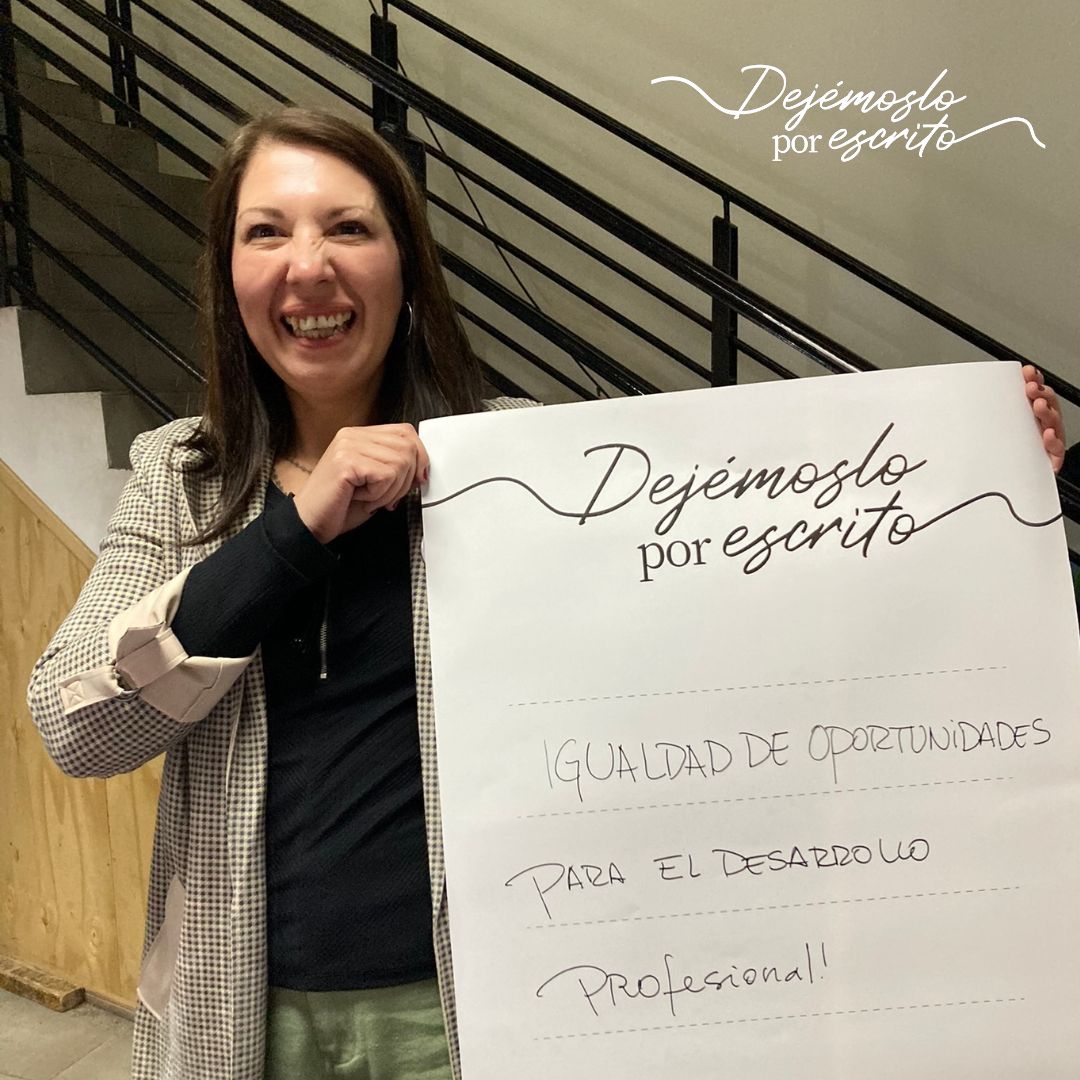 Dejémoslo
por escrito
Dejémoslo
por escrito
IGUALDAD DE OPORTUNIDADES
PARA EL DESARROLLO
PROFesional!